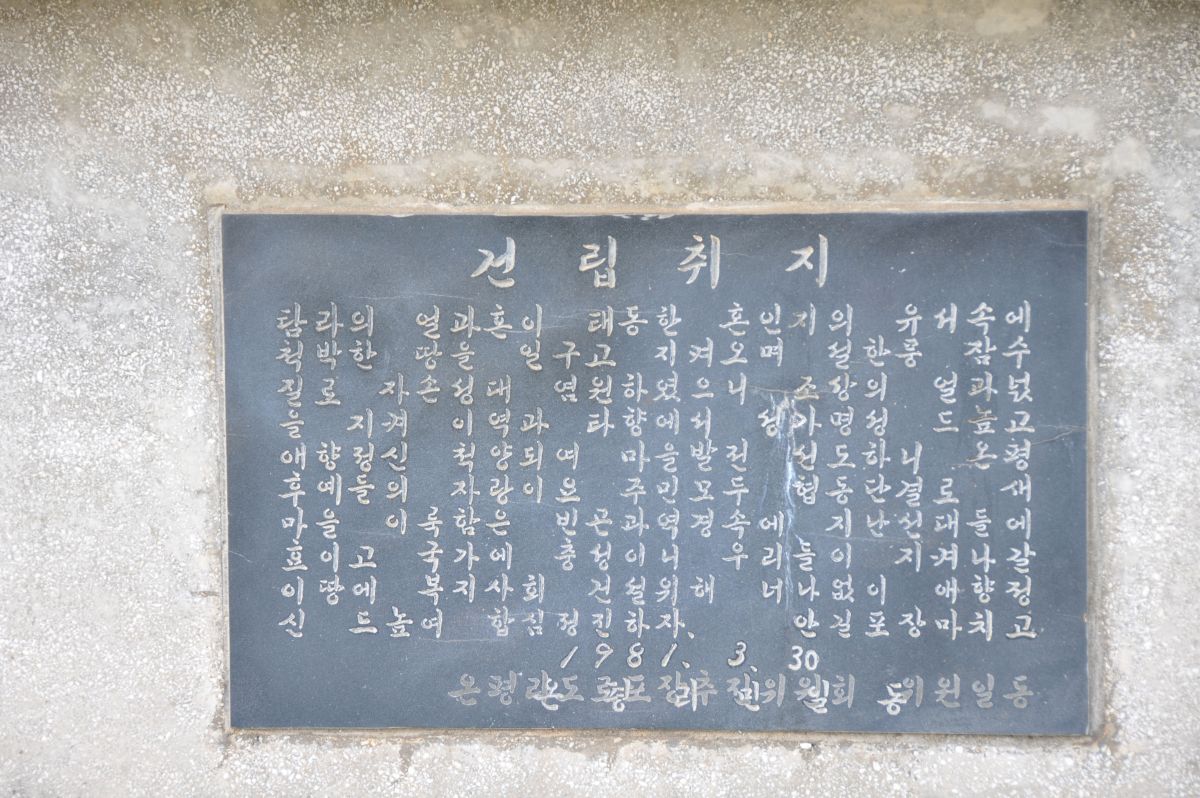 건립취지
탐라의 얼과혼이 태동한 혼인지의 유서속에
척박한 땅을 일구고 지켜오며 설한룽 잠수
질로 자손성대 염원하였으니 조상의 얼과넋
을 지켜 이역과 타향에서 성가 명성 드높고
애향정신 척양되여 마을발전 선도하니 온평
후예들의 자랑이요 주민모두 협동단결로 새
마을 이룩함은 빈곤과 역경속에 지난 선대들에
표이고 국가에 충성이니 우리들이 지켜나갈
이땅에 복지사회 건설위해 너나없이 애향정
신 드높여 합심정진하자. 안길포장마치고
1981. 3. 30
온평리 도로포장추진위원회 위원일동
온평리민일동